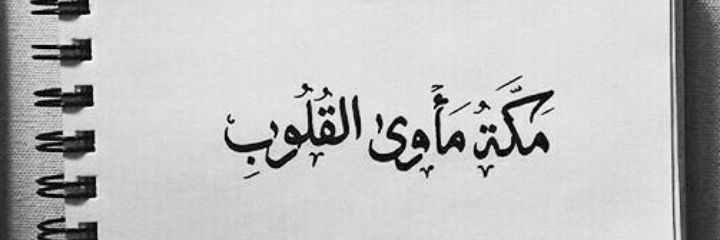 مَكَّةُ مَأْوى القُلُوبِ